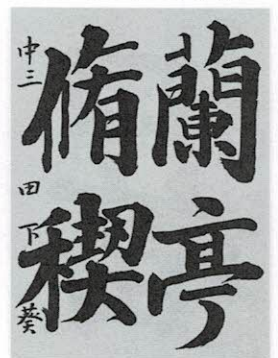 蘭亭
脩稧
中三 田下 葵